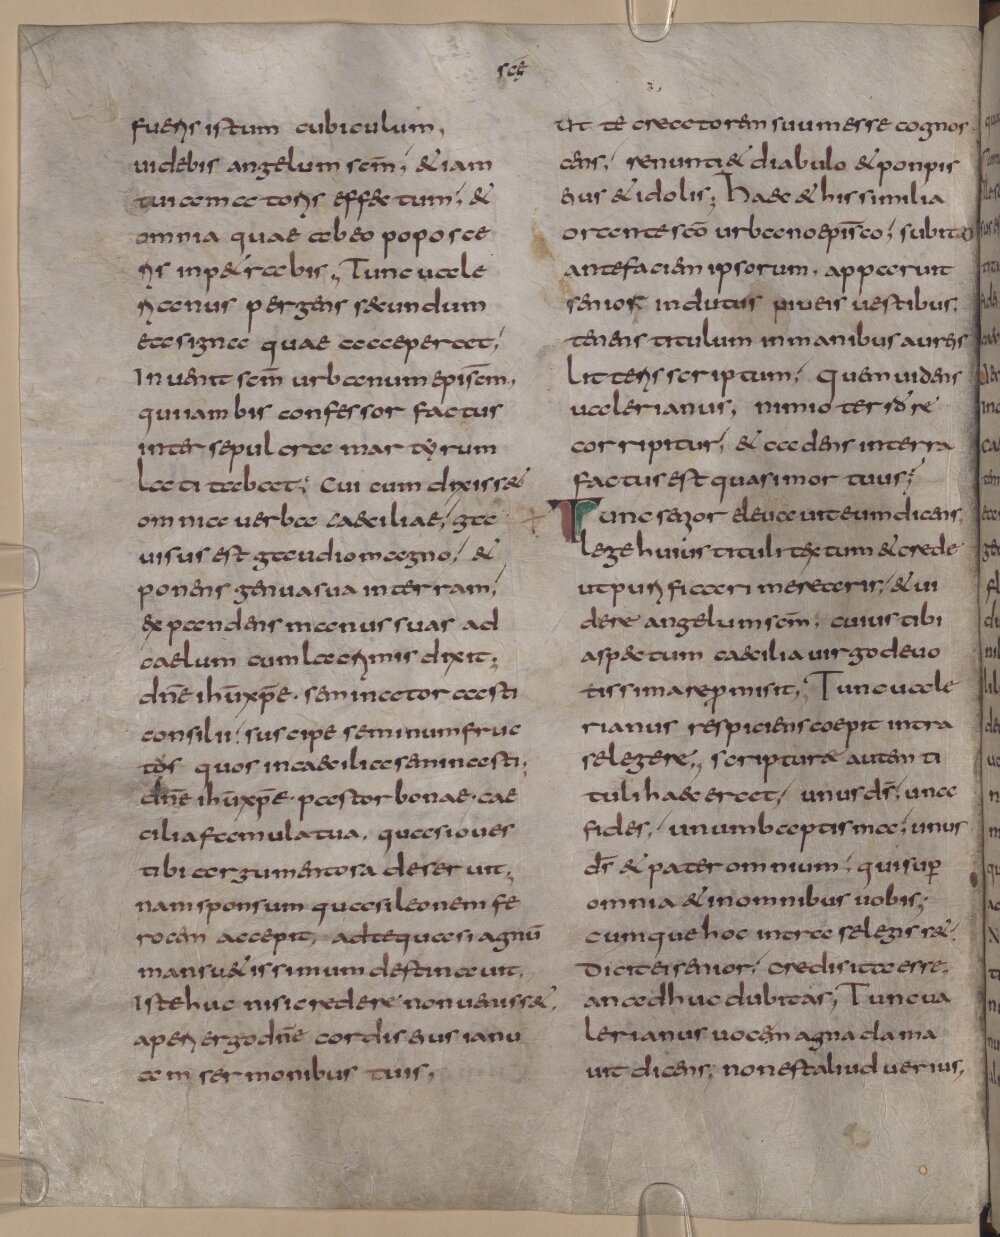 scę
fueris istum cubiculum,
uidebis angelum scm̄; & iam
tui amatoris effectum; &
omnia quae abeo poposce
ris inp&rabis; Tunc uale
rianus pergens secundum
ea signa quae acceperat;
Inuenit scm̄ urbanum episcm̄,
qui iam bis confessor factus
inter sepulcra martyrum
latitabat; Cui cum dixiss&
omnia uerba caeciliae; ga
uisus est gaudio magno; &
ponens genua sua in terram;
expandens manus suas ad
caelum cum lacrimis dixit;
dn̄e ihū xp̄e· seminator casti
consilii; suscipe seminum fruc
tos quos in caecilia seminasti;
dn̄e ihū xp̄e· pastor bonae· cae
cilia famula tua, quasi oues
tibi argumentosa deseruit;
nam sponsum quasi leonem fe
rocem accepit; ad te quasi agnū
mansu&issimum destinauit.
Iste huc nisi crederet non uenisse&,
aperi ergo dn̄e cordis eius ianu
am sermonibus tuis,
ut te creatorem suum esse cognos
cens; renunti& diabulo & ponpis
eius & idolis; Haec & his similia
orante scō urbano epīsco; subito
ante faciem ipsorum, apparuit
senior indutus niueis uestibus,
tenens titulum in manibus aureis
litteris scriptum; Quem uidens
ualerianus, nimio terrore
corripitur; & cadens in terra
factus est quasi mortuus;
Tunc senior eleuauit eum dicens,
lege huius tituli textum & crede
ut purificari merearis; & ui
dere angelum scm̄; cuius tibi
aspectum caecilia uirgo deuo
tissima repromisit; Tunc uale
rianus respiciens coepit intra
se legere; scriptura autem ti
tuli haec erat; unus ds̄; una
fides; unum baptisma; unus
ds̄ & pater omnium; qui super
omnia & in omnibus uobis;
cumque hoc intra se legiss&;
Dicit ei senior; credis ita esse;
an adhuc dubitas; Tunc ua
lerianus uoce magna clama
uit dicens; non est aliud uerius,